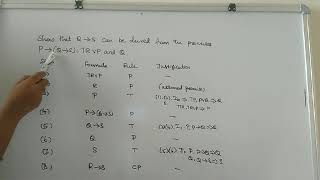 Show that R→S can be derived from the premises
P→(Q→S), ℸRvP and Q
Formula Rule Justification
(1) ℸRvP P —
(2) R P (assumed premise)
(3) P T
(4) P→(Q→S) P —
(5) Q→S T P, P→Q ⇒ Q
(6) Q P —
(7) S T P, P→Q ⇒ Q
Q, Q→S ⇒ S
(8) R→S CP —